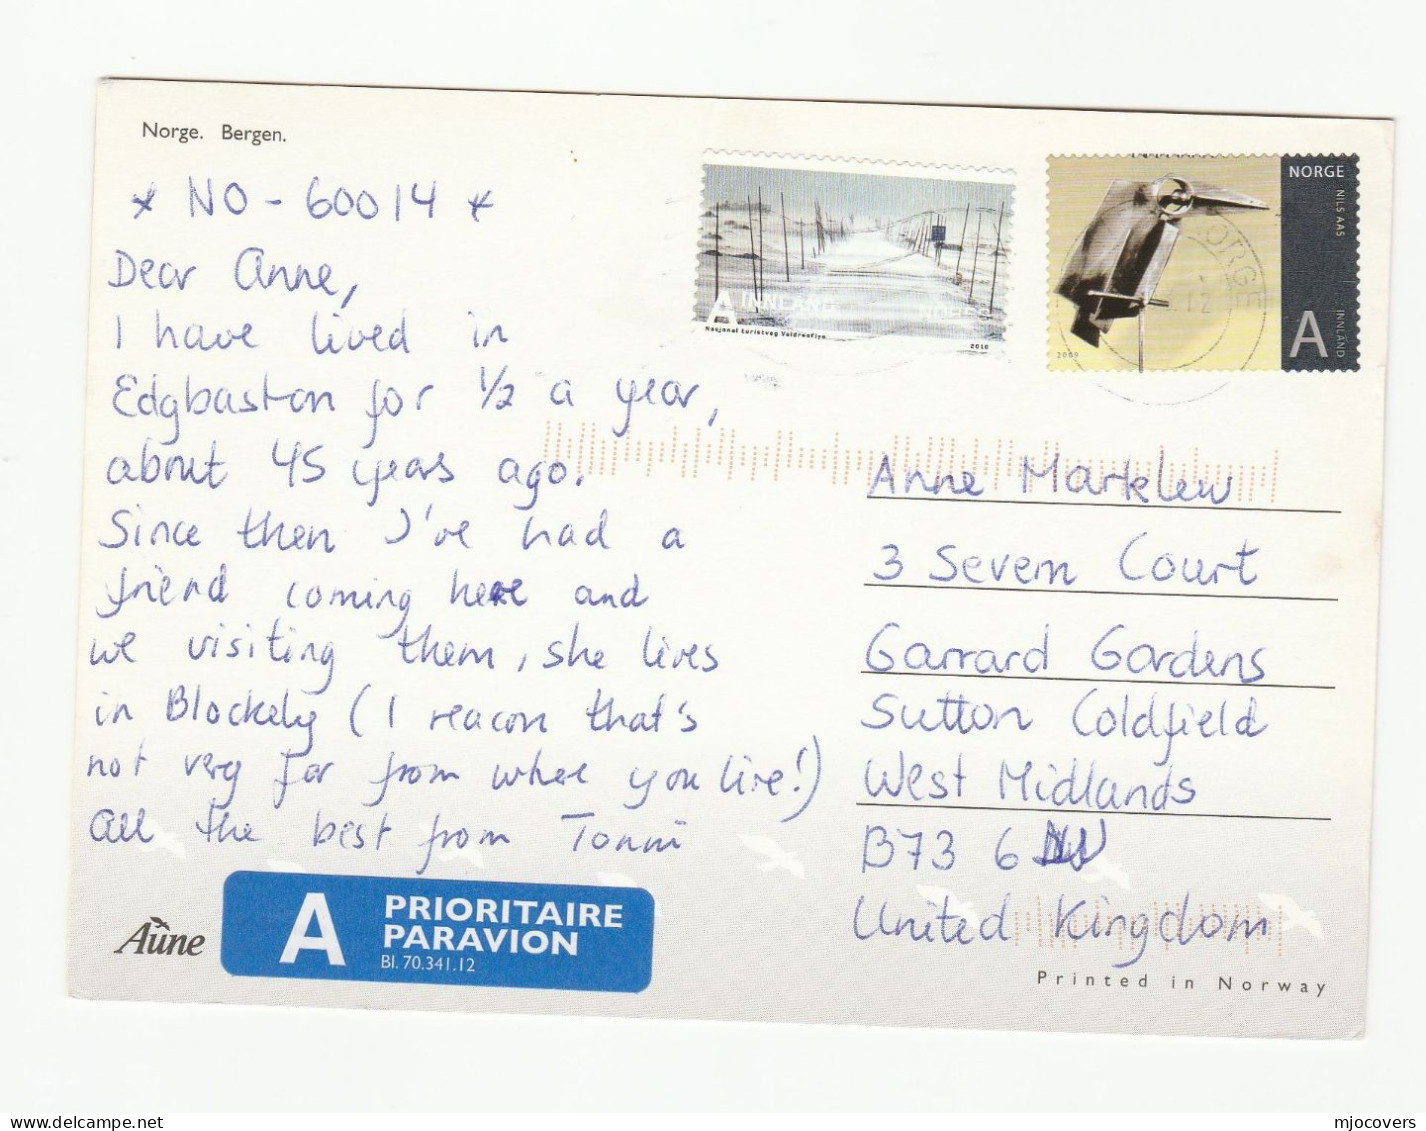 Norge. Bergen.
* NO-60014 *
Dear Anne,
I have lived in
Edgbaston for 1/2 a year,
about 45 years ago.
Since then I've had a
friend coming here and
we visiting them, she lives
in Blockely (I reacon that's
not very far from where you live!)
All the best from Tonni
A INNLAND NORGE
Nasjonal turistveg Valdresflye
2010
NORGE
NILS AAS
INNLAND
A
2009
NORGE
12
Anne Marklew
3 Severn Court
Garrard Gardens
Sutton Coldfield
West Midlands
B73 6
United Kingdom
Aune
A PRIORITAIRE
PARAVION
Bl. 70.341.12
Printed in Norway
delcampe.net
mjocovers